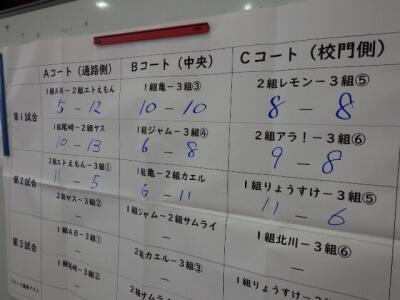 Aコート（通路側） Bコート（中央） Cコート（校門側）
第1試合
1組AB－2組エトえもん 1組亀－3組③ 2組レモン－3組⑤
5 － 12 10 － 10 8 － 8
1組尾崎－2組ヤス 1組ジャム－3組④ 2組アラ！－3組⑥
10 － 13 6 － 8 9 － 8
第2試合
2組エトえもん－3組① 1組亀－2組カエル 1組りょうすけ－3組⑤
11 － 5 6 － 11 11 － 6
2組ヤス－3組② 1組ジャム－2組サムライ 1組北川－3組⑥
－ － －
第3試合
1組AB－3組① 2組カエル－3組③
－ －
1組尾崎－3組②
－